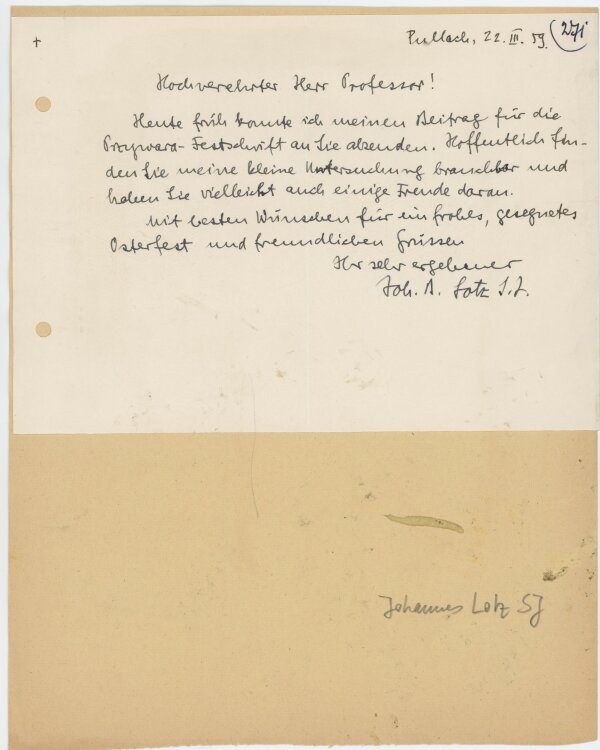 †
Pullach, 22. III. 59.
271
Hochverehrter Herr Professor!
Heute früh konnte ich meinen Beitrag für die
Przywara-Festschrift an Sie absenden. Hoffentlich fin-
den Sie meine kleine Untersuchung brauchbar und
haben Sie vielleicht auch einige Freude daran.
Mit besten Wünschen für ein frohes, gesegnetes
Osterfest und freundlichen Grüssen
Ihr sehr ergebener
Joh. B. Lotz S.J.
Johannes Lotz SJ